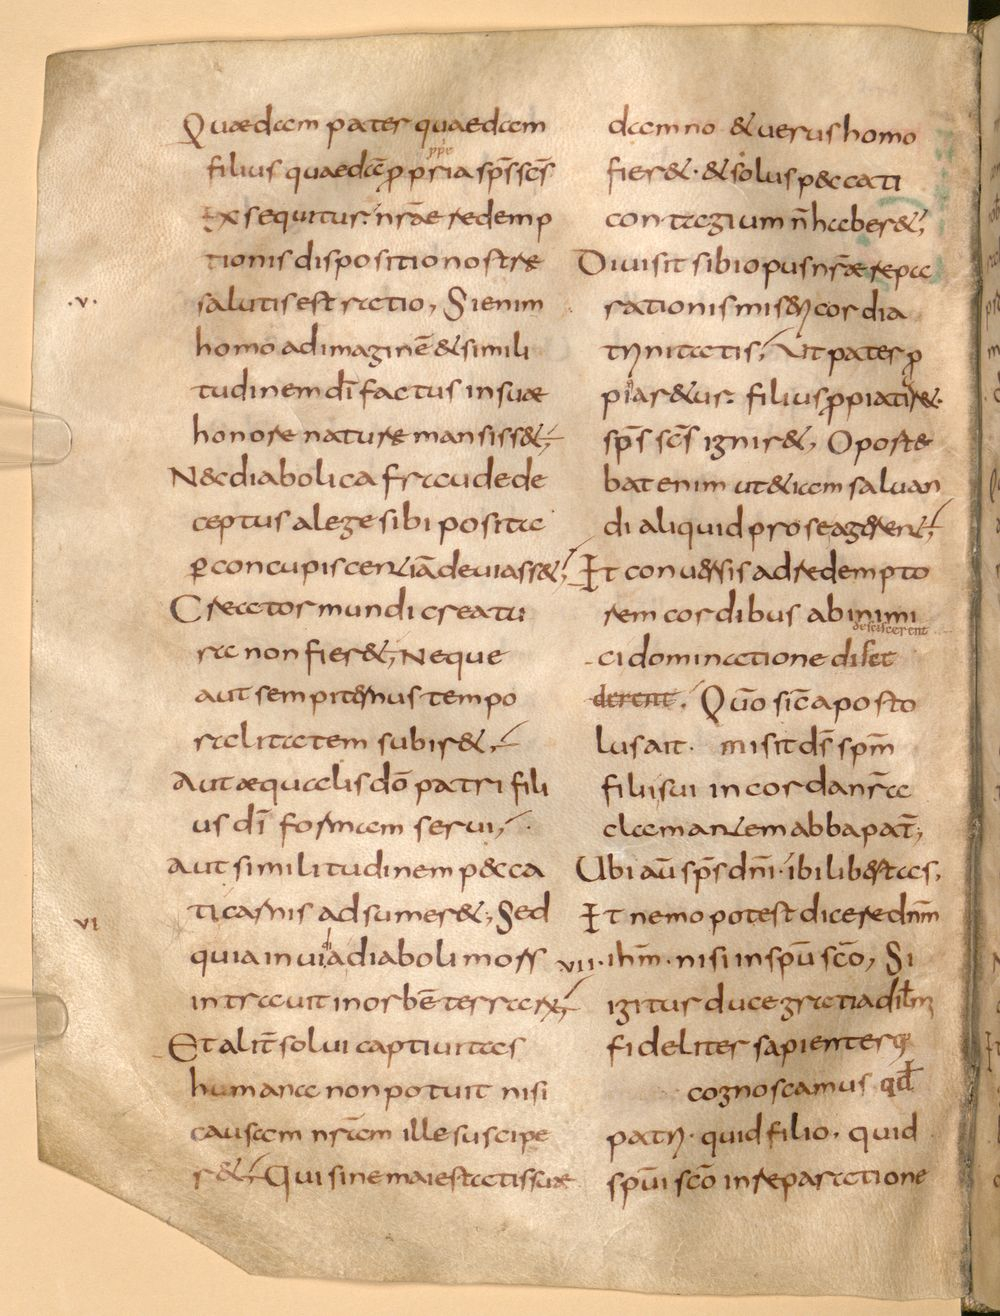 Quaedam pater quaedam
filius quaedā ꝓpria sp̄s sc̄s
exsequitur. nr̄ae redemp
tionis dispositio nostrę
·v· salutis est ratio, Si enim
homo ad imaginē & simili
tudinem dī factus in suae
honore naturę mansiss&;
N&c diabolica fraude de
ceptus a lege sibi posita
ꝑ concupiscentiā deuiass&;
Creator mundi creatu
ra non fier&, Neque
aut sempiternus tempo
ralitatem subir&,
Aut aequalis dō patri fili
us dī formam serui,
Aut similitudinem p&cca
vi ti carnis adsumer&; Sed
quia inuidia diaboli mors
intrauit in orbē terrarȝ;
Et alit̄ solui captiuitas
humana non potuit nisi
causam nr̄am ille suscipe
r&; Qui sine maiestatis suae
damno & uerus homo
fier& · & solus p&ccati
contagium n̄ haber&;
Diuisit sibi opus nr̄ae repa
rationis misericordia
trinitatis, Ut pater ꝓ
piar&ur. filius ꝓpiar&.
sp̄s sc̄s ignir&, Oporte
bat enim ut &iam saluan
di aliquid pro se agerent;
Et conuersis ad redempto
rem cordibus ab inimi
desciscerent
ci dominatione disce
derent. Quō sic̄ aposto
lus ait. misit ds̄ spm̄
filii sui in corda nr̄a
clamantem abba pat̄;
Ubi aū sp̄s dnī · ibi libertas,
Et nemo potest dicere dnm̄
vii · ihm̄ · nisi in spū scō, Si
igitur duce gratia dilm̄
fideliter sapienterq;
cognoscamus qd
patri · quid filio, quid
spūi scō in reparatione